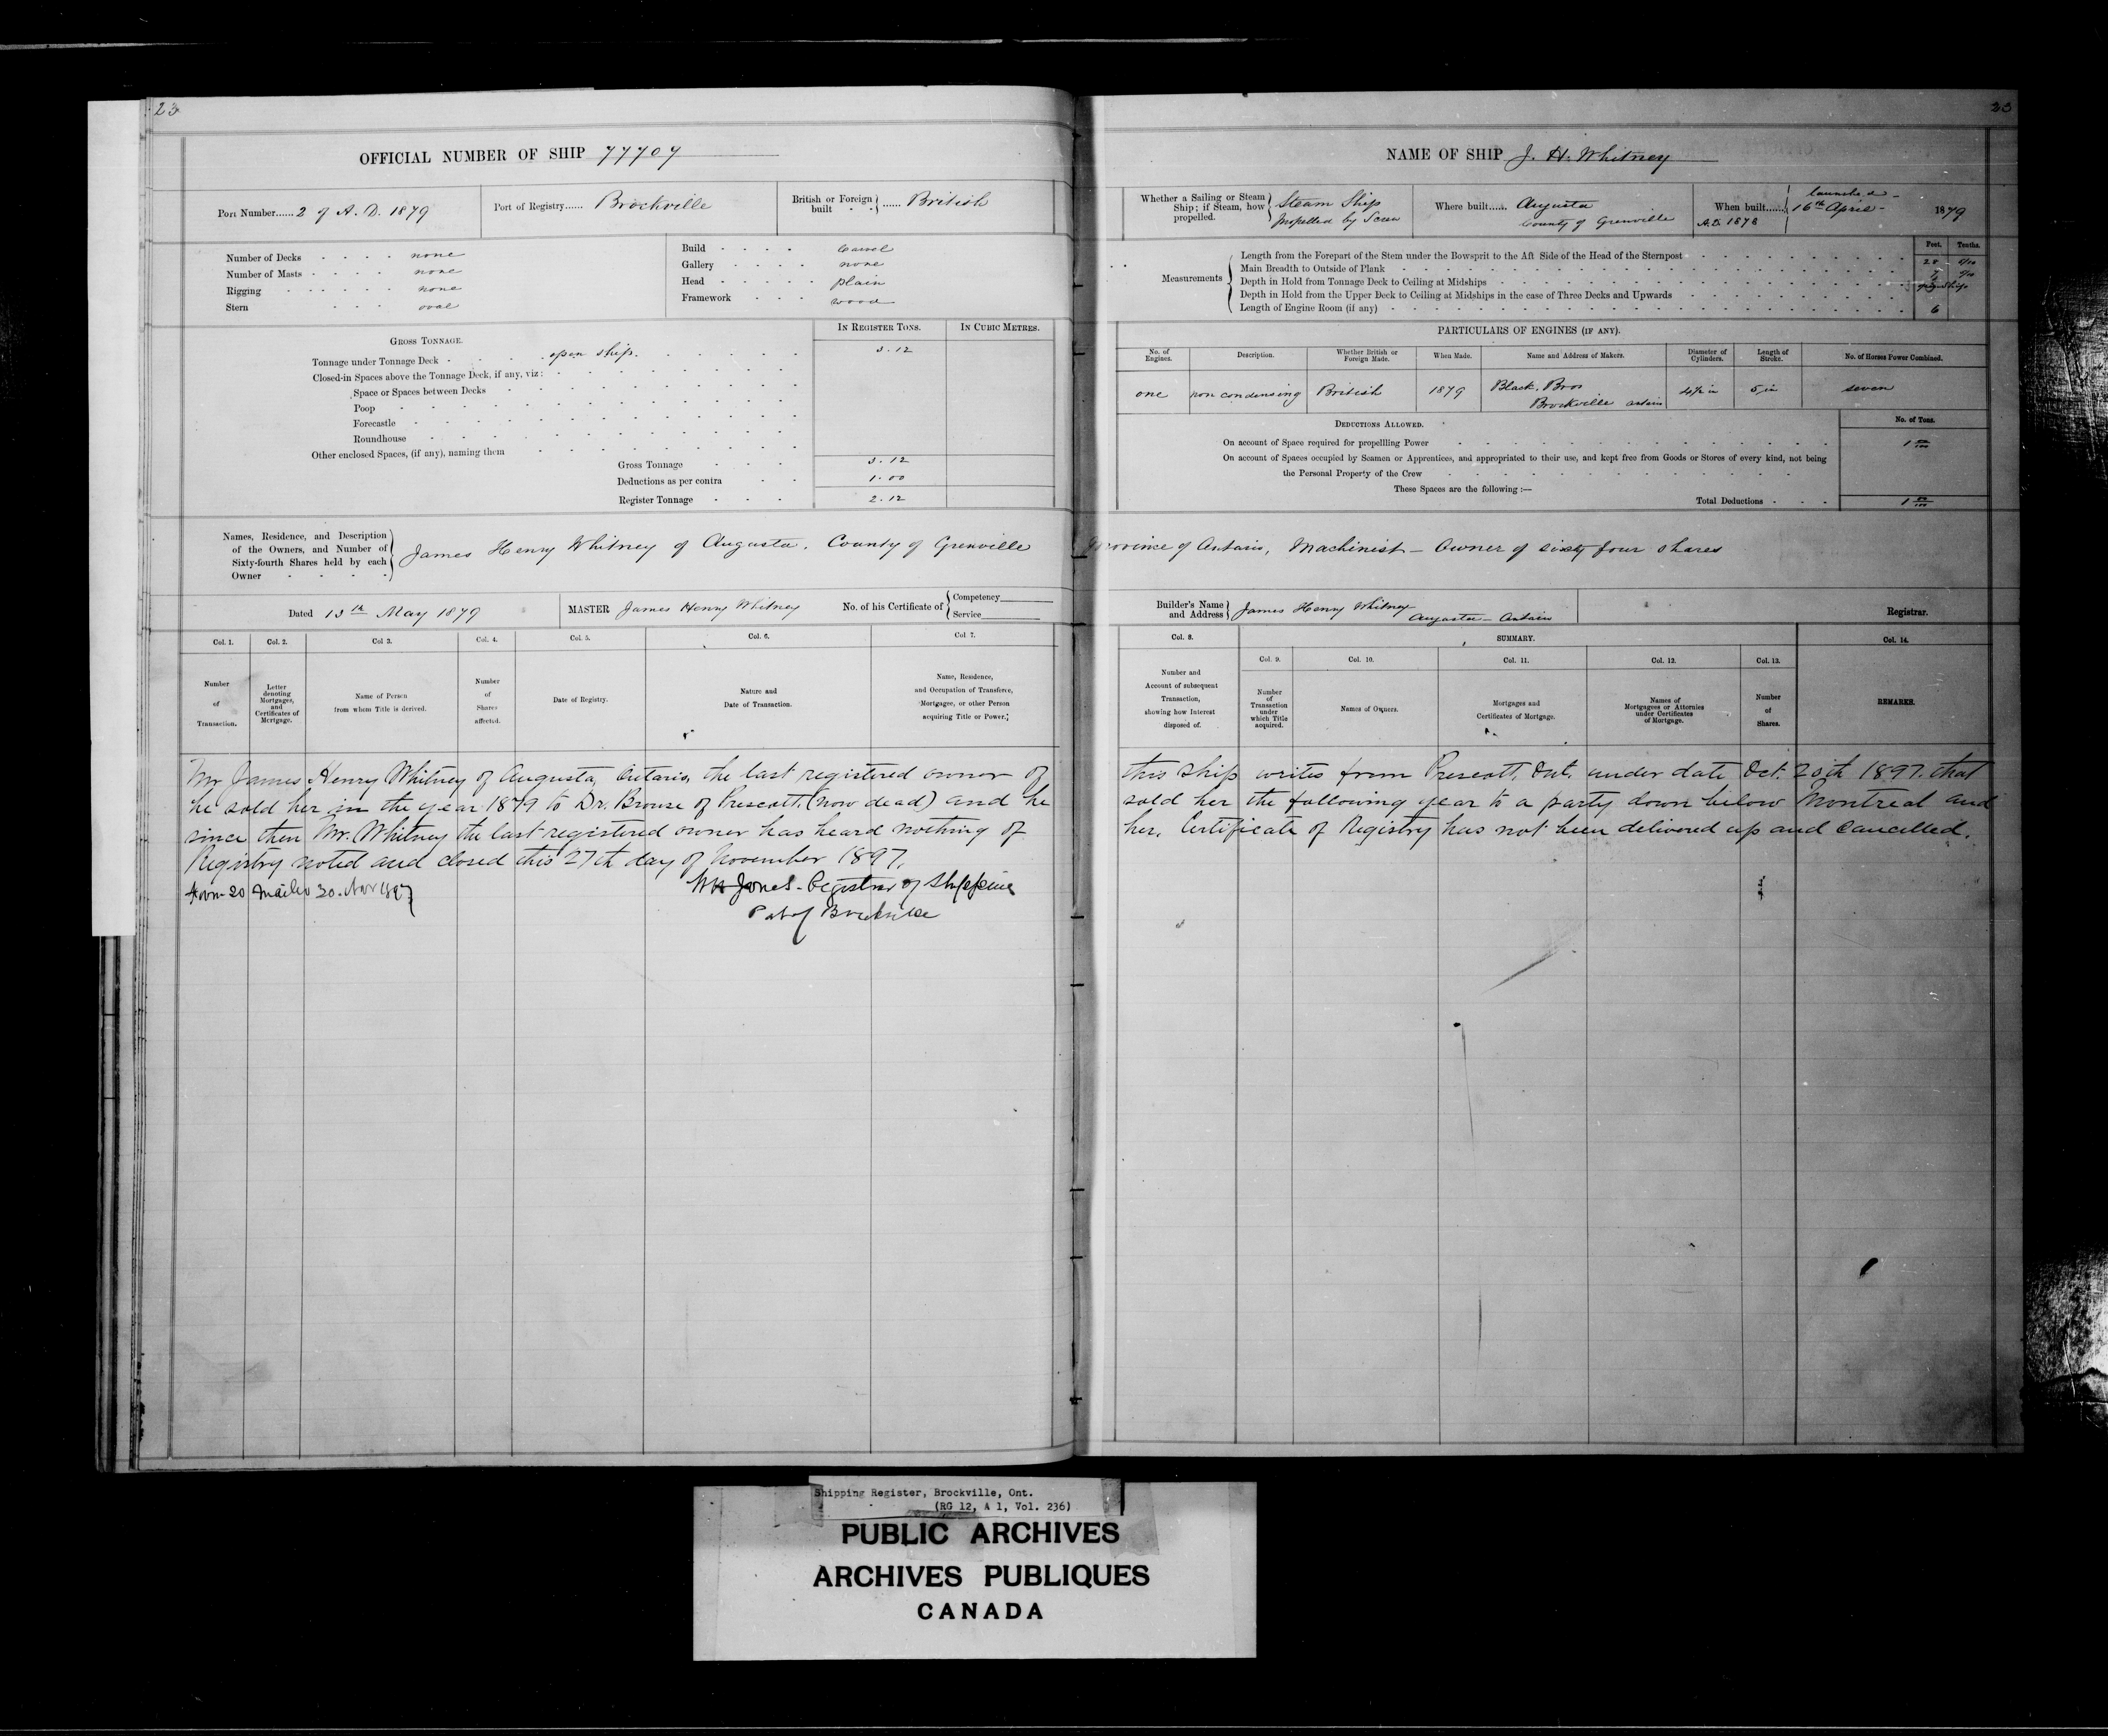 23
OFFICIAL NUMBER OF SHIP 77707
Port Number......2 of A. D. 1879
Port of Registry...... Brockville
British or Foreign built - - } ...... British
Number of Decks - - - - none
Number of Masts - - - - none
Rigging - - - - - - none
Stern - - - oval
Build - - - - Carvel
Gallery - - - - none
Head - - - - - plain
Framework - - - wood
GROSS TONNAGE.
IN REGISTER TONS.
IN CUBIC METRES.
Tonnage under Tonnage Deck - open ship. 3.12
Closed-in Spaces above the Tonnage Deck, if any, viz:
Space or Spaces between Decks
Poop
Forecastle
Roundhouse
Other enclosed Spaces, (if any), naming them
Gross Tonnage 3.12
Deductions as per contra 1.00
Register Tonnage 2.12
Names, Residence, and Description
of the Owners, and Number of
Sixty-fourth Shares held by each
Owner
James Henry Whitney of Augusta, County of Grenville
Dated 13th May 1879
MASTER James Henry Whitney
No. of his Certificate of { Competency
Service
Col. 1.
Col. 2.
Col 3.
Col. 4.
Col. 5.
Col. 6.
Col. 7.
Number of Transaction.
Letter denoting Mortgages, and Certificates of Mortgage.
Name of Person from whom Title is derived.
Number of Shares affected.
Date of Registry.
Nature and Date of Transaction.
Name, Residence, and Occupation of Transferee, Mortgagee, or other Person acquiring Title or Power.
Mr James Henry Whitney of Augusta, Ontario, the last registered owner of
he sold her in the year 1879 to Dr. Brouse of Prescott, (now dead) and he
since then Mr. Whitney the last registered owner has heard nothing of
Registry noted and closed this 27th day of November 1897.
Form 20 Mailed 30. Nov 1897
Wm Jones - Registrar of Shipping
Port of Brockville
23
NAME OF SHIP J. H. Whitney
Whether a Sailing or Steam
Ship; if Steam, how
propelled.
Steam Ship
Propelled by Screw
Where built...... Augusta
County of Grenville
When built...... launched -
16th April - 1879
A.D. 1878
Feet. Tenths.
Measurements
Length from the Forepart of the Stem under the Bowsprit to the Aft Side of the Head of the Sternpost 28
Main Breadth to Outside of Plank 7
Depth in Hold from Tonnage Deck to Ceiling at Midships open ship
Depth in Hold from the Upper Deck to Ceiling at Midships in the case of Three Decks and Upwards
Length of Engine Room (if any) 6
PARTICULARS OF ENGINES (IF ANY).
No. of Engines.
Description.
Whether British or Foreign Made.
When Made.
Name and Address of Makers.
Diameter of Cylinders.
Length of Stroke.
No. of Horses Power Combined.
one
non condensing
British
1879
Black, Bros
Brockville Ontario
4½ in
5 in
seven
DEDUCTIONS ALLOWED.
No. of Tons.
On account of Space required for propelling Power 1 00/100
On account of Spaces occupied by Seamen or Apprentices, and appropriated to their use, and kept free from Goods or Stores of every kind, not being
the Personal Property of the Crew
These Spaces are the following:—
Total Deductions 1 00/100
Province of Ontario, Machinist - Owner of sixty four shares
Builder's Name
and Address
James Henry Whitney
Augusta - Ontario
Registrar.
Col. 8.
SUMMARY.
Col. 14.
Col. 9.
Col. 10.
Col. 11.
Col. 12.
Col. 13.
Number and Account of subsequent Transaction, showing how Interest disposed of.
Number of Transaction under which Title acquired.
Names of Owners.
Mortgages and Certificates of Mortgage.
Names of Mortgagees or Attornies under Certificates of Mortgage.
Number of Shares.
REMARKS.
this Ship writes from Prescott, Ont. under date Oct. 20th 1897. that
sold her the following year to a party down below Montreal and
her. Certificate of Registry has not been delivered up and Cancelled.
Shipping Register, Brockville, Ont.
(RG 12, A 1, Vol. 236)
PUBLIC ARCHIVES
ARCHIVES PUBLIQUES
CANADA